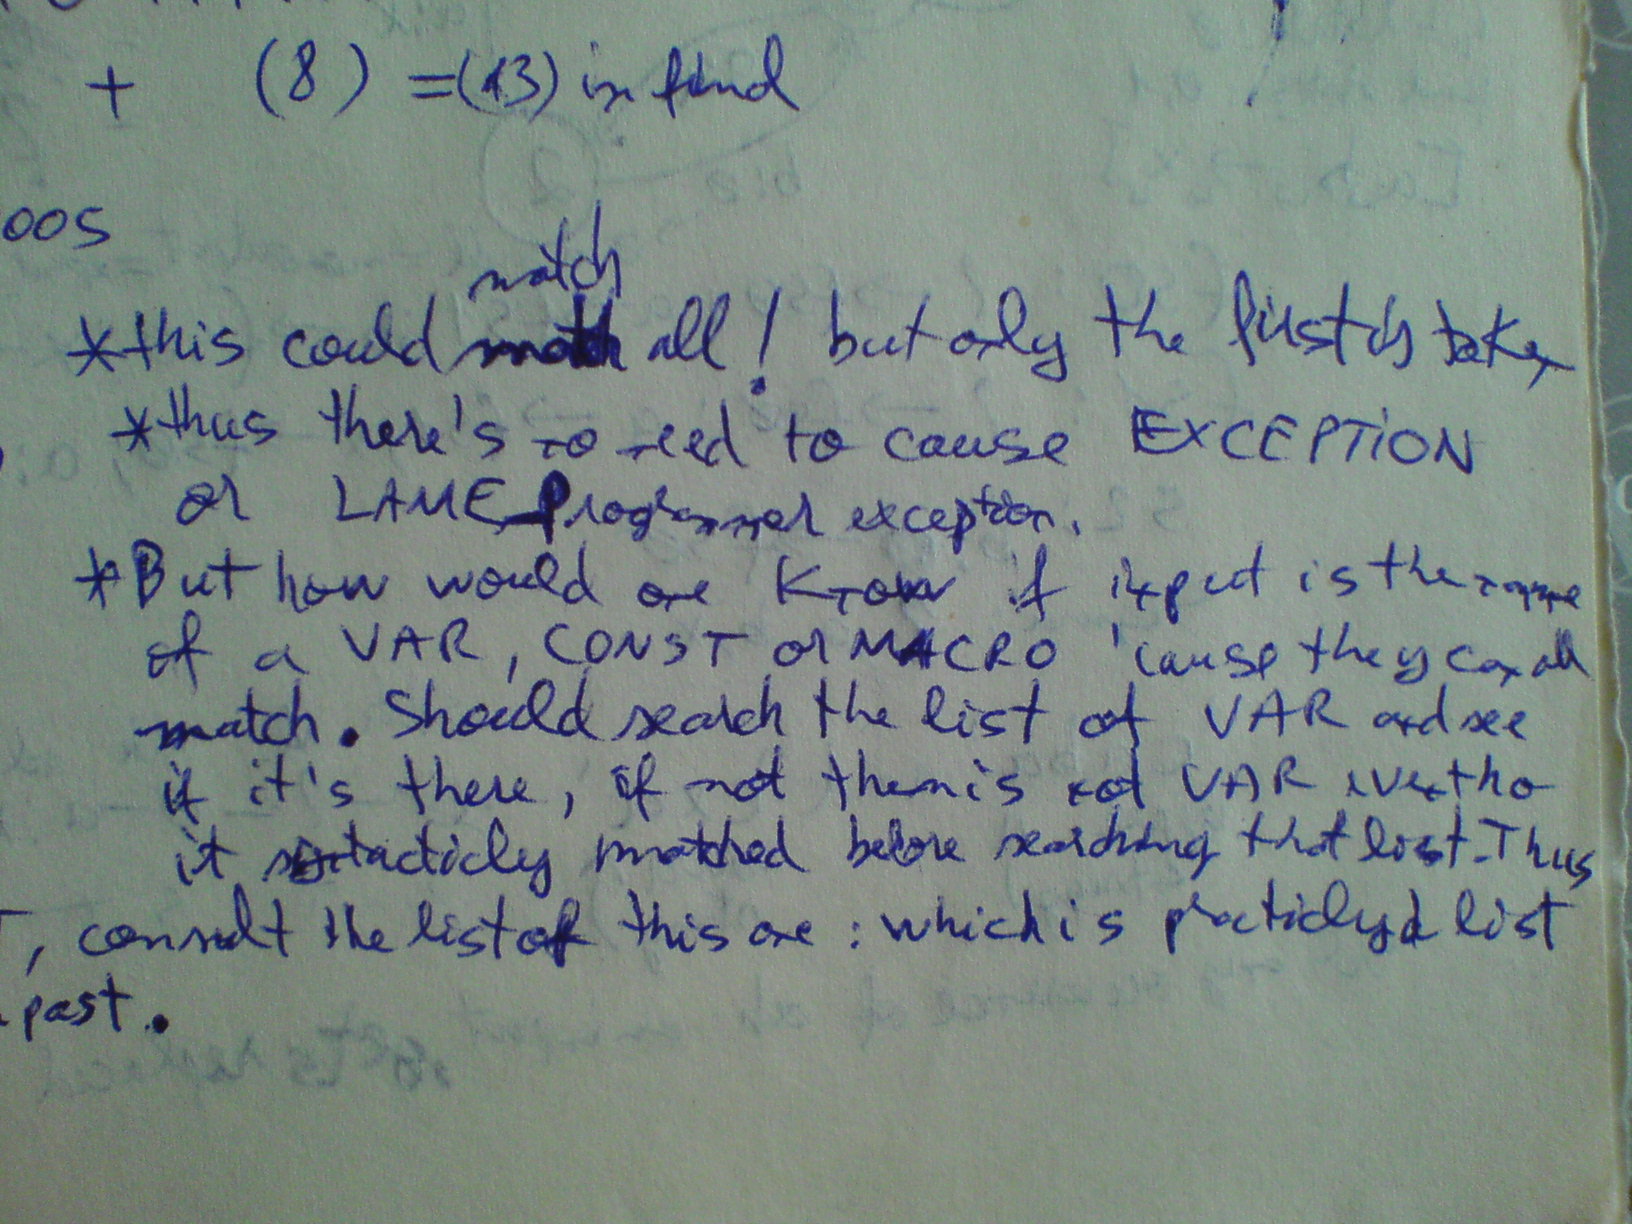 + (8) = (13) in find
oos
match
*this could match all! but only the first is taken
*thus there's no need to cause EXCEPTION
or LAME Programmer exception.
*But how would one know if input is the name
of a VAR, CONST or MACRO 'cause they can all
match. Should search the list of VAR and see
if it's there, if not then is not VAR eventho
it syntacticly matched before searching that list. Thus
, consult the list of this one: which is practicly a list
past.